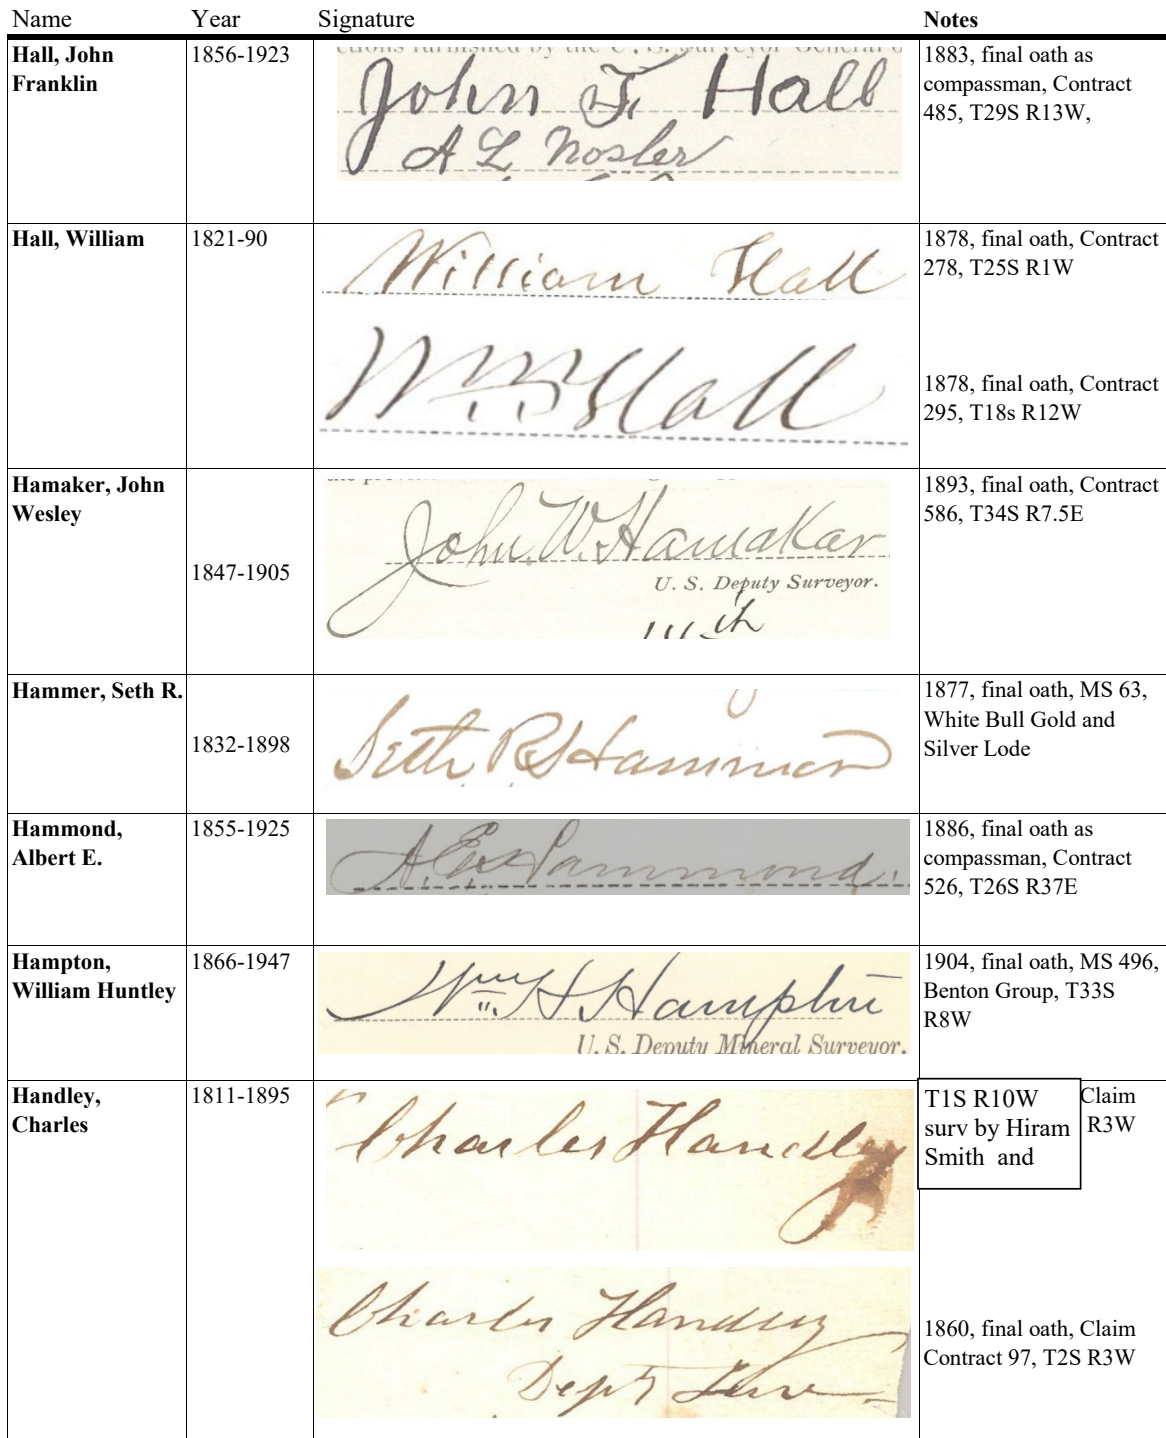 Name Year Signature Notes
Hall, John Franklin 1856-1923
ctions furnished by the U. S. Surveyor General o
John F. Hall
A L Nosler
1883, final oath as
compassman, Contract
485, T29S R13W,
Hall, William 1821-90
William Hall
1878, final oath, Contract
278, T25S R1W
Wm Hall
1878, final oath, Contract
295, T18s R12W
Hamaker, John
Wesley
1847-1905
John. W. Hamakar
U. S. Deputy Surveyor.
1893, final oath, Contract
586, T34S R7.5E
Hammer, Seth R.
1832-1898
Seth R Hammer
1877, final oath, MS 63,
White Bull Gold and
Silver Lode
Hammond,
Albert E.
1855-1925
A. E. Hammond.
1886, final oath as
compassman, Contract
526, T26S R37E
Hampton,
William Huntley
1866-1947
Wm H. Hampton
U. S. Deputy Mineral Surveyor.
1904, final oath, MS 496,
Benton Group, T33S
R8W
Handley,
Charles
1811-1895
Charles Handley
T1S R10W
surv by Hiram
Smith and
Claim
R3W
Charles Handley
Dept Surv
1860, final oath, Claim
Contract 97, T2S R3W